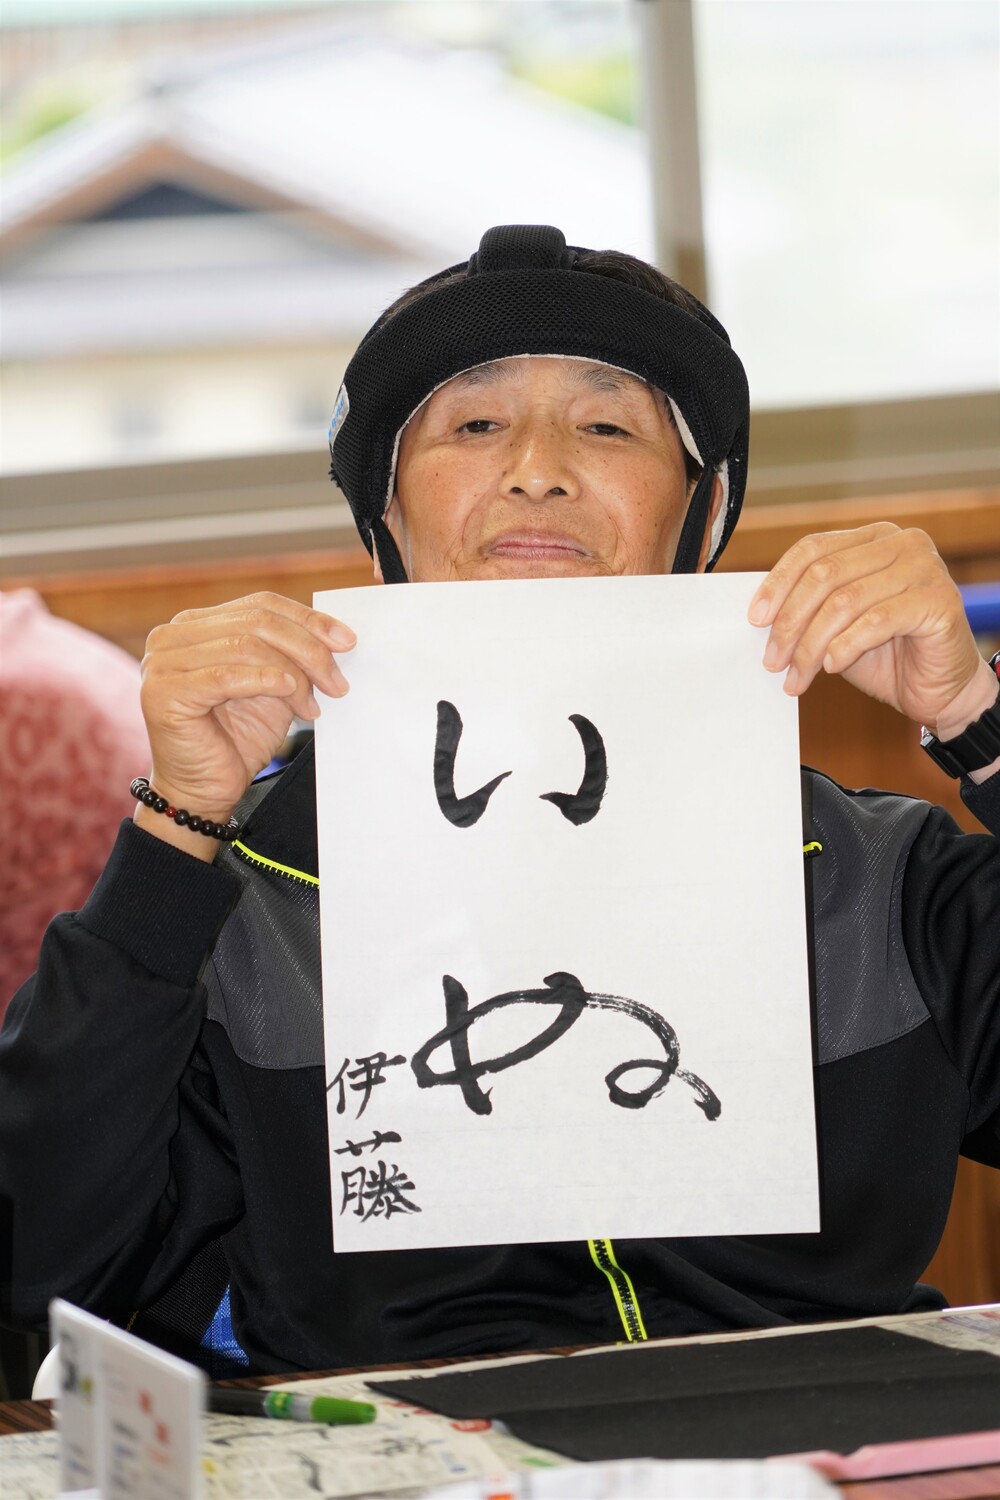 いぬ
伊藤